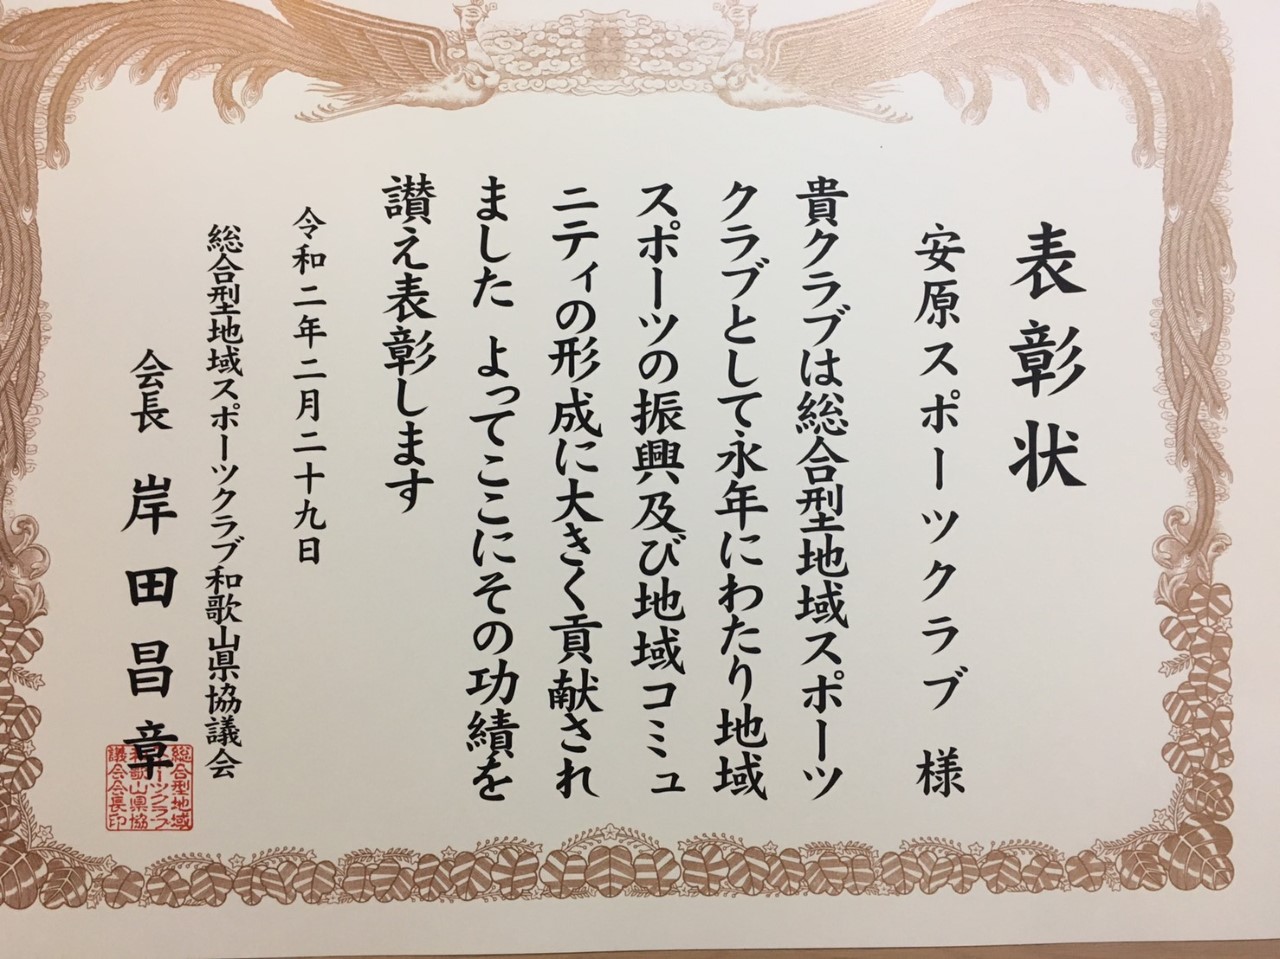 表彰状
安原スポーツクラブ 様
貴クラブは総合型地域スポーツ
クラブとして永年にわたり地域
スポーツの振興及び地域コミュ
ニティの形成に大きく貢献され
ました よってここにその功績を
讃え表彰します
令和二年二月二十九日
総合型地域スポーツクラブ和歌山県協議会
会長 岸田昌章
総合型地域
スポーツクラブ
和歌山県協
議会会長印